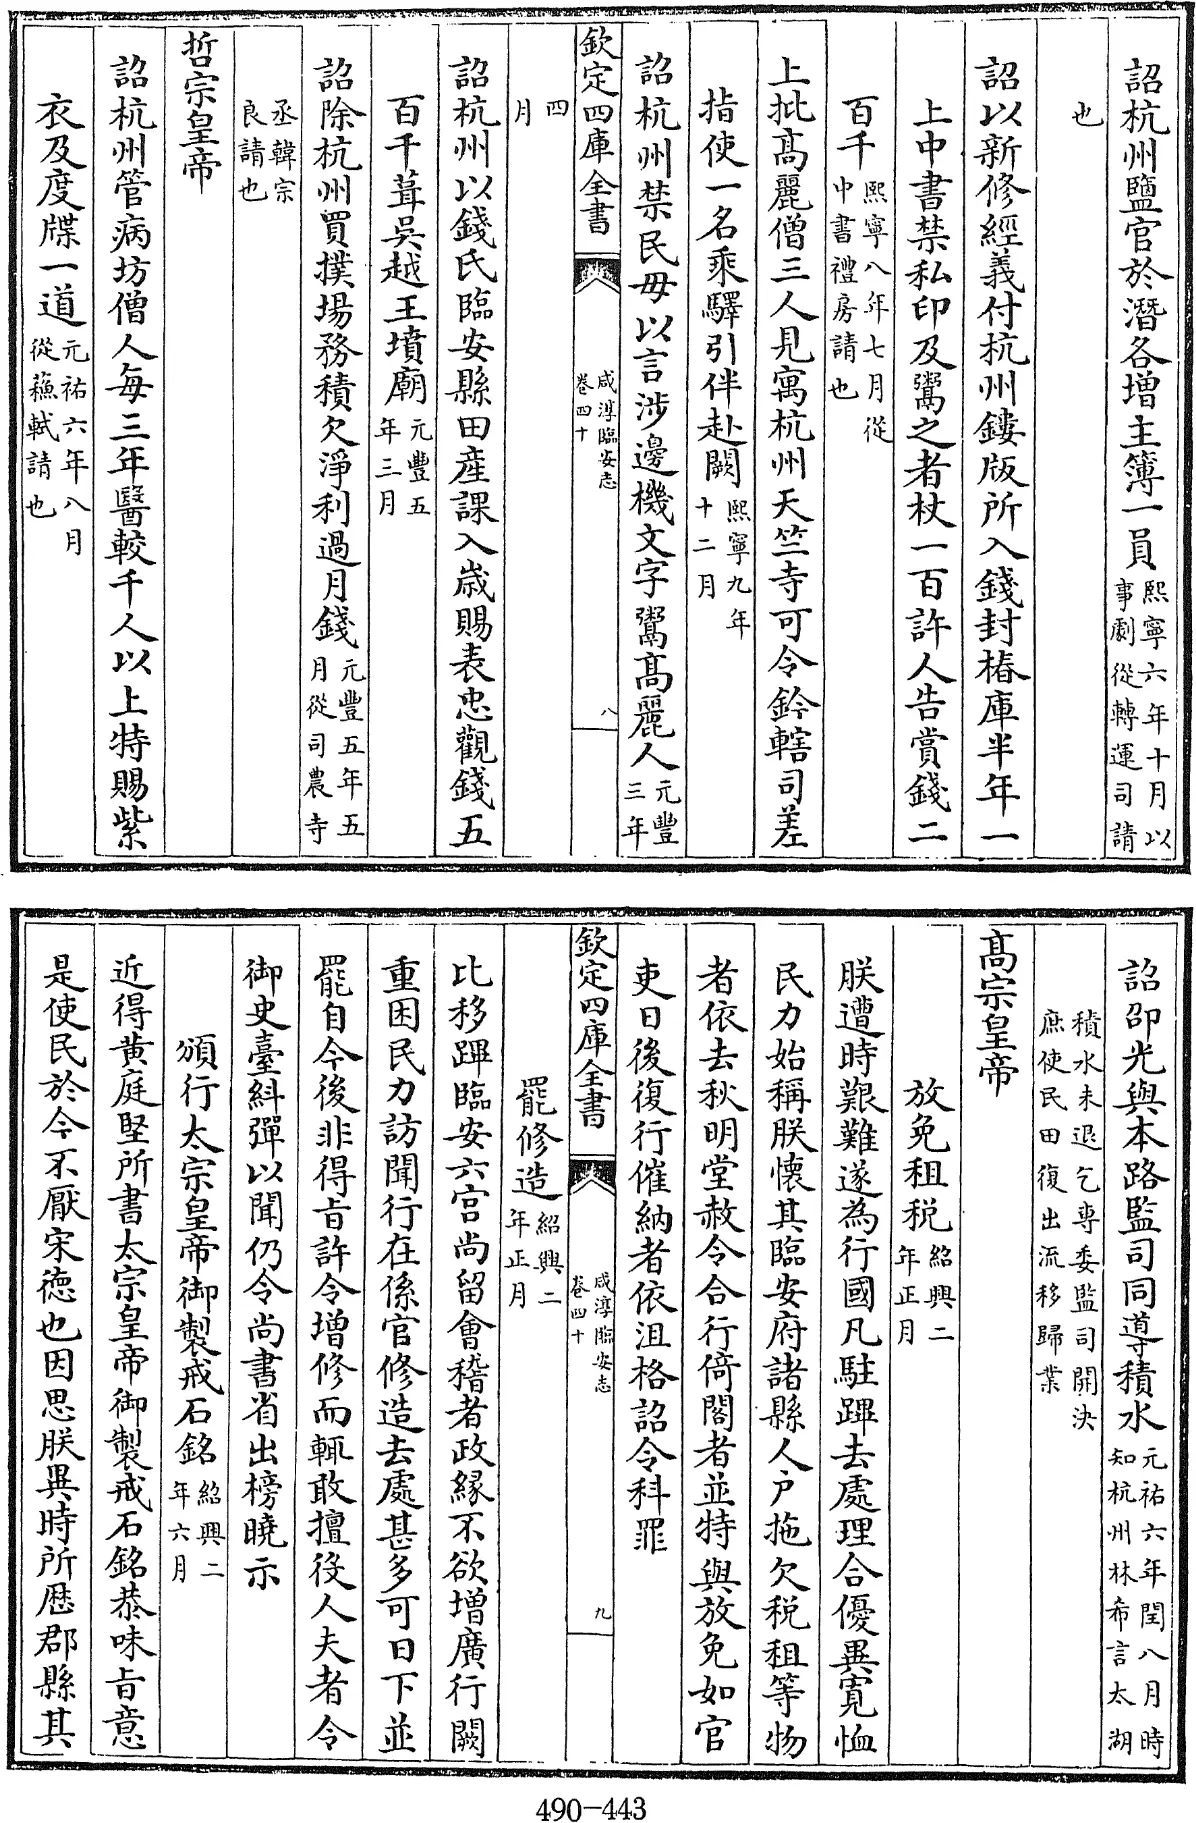 詔杭州鹽官於潛各增主簿一員熙寧六年十月以事劇從轉運司請
也
詔以新修經義付杭州鏤版所入錢封樁庫半年一
上中書禁私印及鬻之者杖一百許人告賞錢二
百千熙寧八年七月從中書禮房請也
上批高麗僧三人見寓杭州天竺寺可令鈐轄司差
指使一名乘驛引伴赴闕熙寧九年十二月
詔杭州禁民毋以言涉邊機文字鬻高麗人元豐三年
欽定四庫全書 咸淳臨安志卷四十 八
四月
詔杭州以錢氏臨安縣田產課入歲賜表忠觀錢五
百千葺吳越王墳廟元豐五年三月
詔除杭州買撲場務積欠淨利過月錢元豐五年五月從司農寺
丞韓宗良請也
哲宗皇帝
詔杭州管病坊僧人每三年醫較千人以上特賜紫
衣及度牒一道元祐六年八月從蘓軾請也
詔卲光與本路監司同導積水元祐六年閏八月時知杭州林希言太湖
積水未退乞專委監司開決庶使民田復出流移歸業
高宗皇帝
放免租稅紹興二年正月
朕遭時艱難遂為行國凡駐蹕去處理合優異寬恤
民力始稱朕懷其臨安府諸縣人户拖欠稅租等物
者依去秋明堂赦令合行倚閣者並特與放免如官
吏日後復行催納者依沮格詔令科罪
欽定四庫全書 咸淳臨安志卷四十 九
罷修造紹興二年正月
比移蹕臨安六宫尚留會稽者政緣不欲增廣行闕
重困民力訪聞行在係官修造去處甚多可日下並
罷自今後非得旨許令增修而輒敢擅役人夫者令
御史臺糾彈以聞仍令尚書省出榜曉示
頒行太宗皇帝御製戒石銘紹興二年六月
近得黃庭堅所書太宗皇帝御製戒石銘恭味旨意
是使民於今不厭宋德也因思朕異時所歷郡縣其
490-443